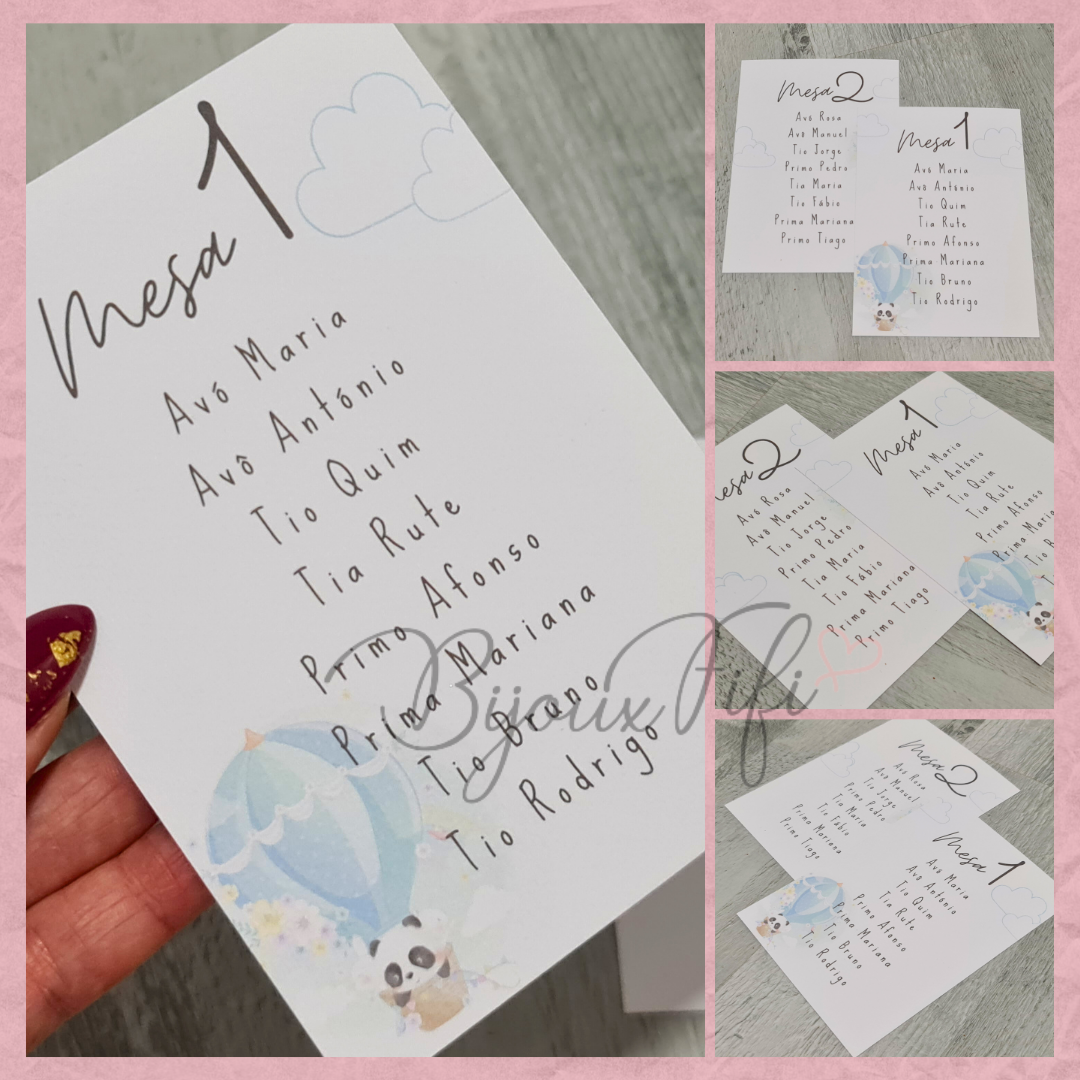 Mesa 1
Avó Maria
Avô António
Tio Quim
Tia Rute
Primo Afonso
Prima Mariana
Tio Bruno
Tio Rodrigo
Bijoux Fifi
Mesa 2
Avó Rosa
Avô Manuel
Tio Jorge
Primo Pedro
Tia Maria
Tio Fábio
Prima Mariana
Primo Tiago
Mesa 1
Avó Maria
Avô António
Tio Quim
Tia Rute
Primo Afonso
Prima Mariana
Tio Bruno
Tio Rodrigo
esa 2
Avó Rosa
Avô Manuel
Tio Jorge
Primo Pedro
Tia Maria
Tio Fábio
Prima Mariana
Primo Tiago
Mesa 1
Avó Maria
Avô António
Tio Quim
Tia Rute
Primo Afonso
Prima Maria
Tio B
Ti
Mesa 2
Avó Rosa
Avô Manuel
Tio Jorge
Primo Pedro
Tia Maria
Tio Fábio
Prima Mariana
Primo Tiago
Mesa 1
Avó Maria
Avô António
Tio Quim
Tia Rute
Primo Afonso
Prima Mariana
Tio Bruno
Tio Rodrigo